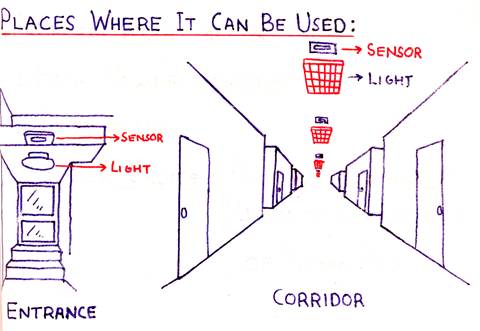 PLACES WHERE IT CAN BE USED:
SENSOR
LIGHT
SENSOR
LIGHT
ENTRANCE
CORRIDOR